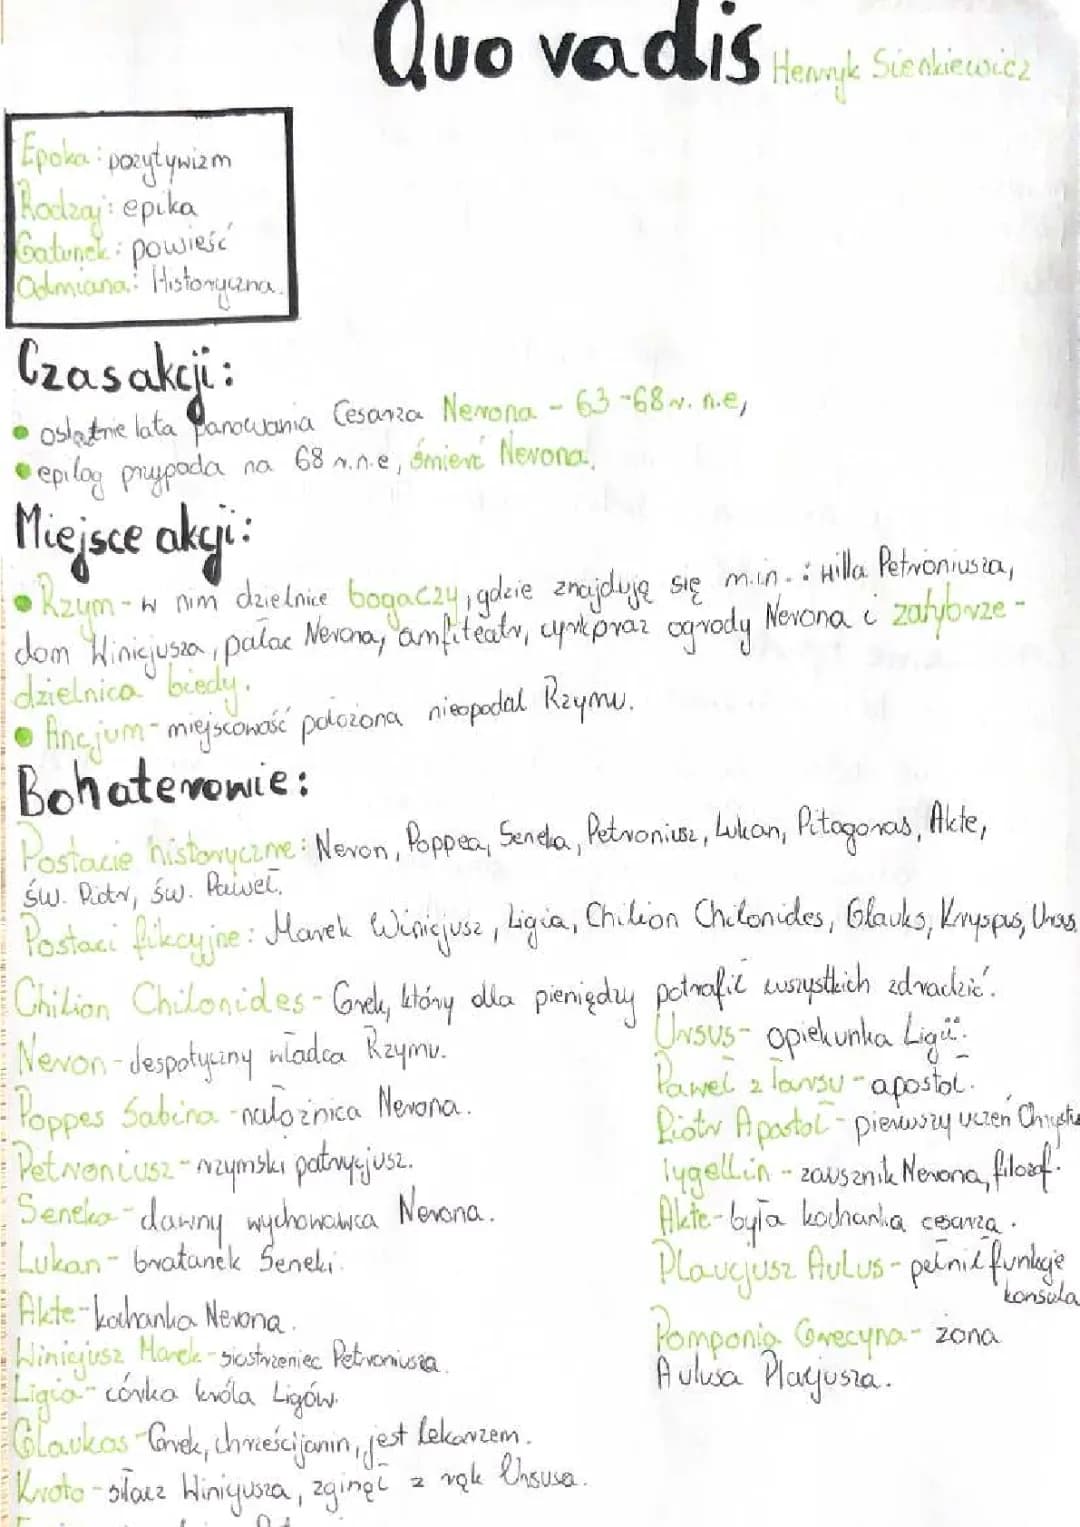 Quo vadis Henryk Sienkiewicz
Epoka: pozytywizm
Rodzaj: epika
Gatunek: powieść
Odmiana: Historyczna.
Czas akcji:
• ostatnie lata panowania Cesarza Nerona - 63-68 r. n.e,
• epilog przypada na 68 r.n.e, śmierć Nerona.
Miejsce akcji:
• Rzym - w nim dzielnice bogaczy, gdzie znajdują się m.in.: willa Petroniusza,
dom Winicjusza, pałac Nerona, amfiteatr, cyrk oraz ogrody Nerona i zatybrze -
dzielnica biedy.
• Ancjum - miejscowość położona nieopodal Rzymu.
Bohaterowie:
Postacie historyczne: Neron, Poppea, Seneka, Petroniusz, Lukan, Pitagoras, Akte,
św. Piotr, św. Paweł.
Postaci fikcyjne: Marek Winicjusz, Ligia, Chilion Chilonides, Glauks, Kryspus, Ursus
Chilion Chilonides - Grek, który dla pieniędzy potrafił wszystkich zdradzić.
Neron - despotyczny władca Rzymu.
Poppes Sabina - nałożnica Nerona.
Petroniusz - rzymski patrycjusz.
Seneka - dawny wychowawca Nerona.
Lukan - bratanek Seneki.
Akte - kochanka Nerona.
Winicjusz Marek - siostrzeniec Petroniusza.
Ligia - córka króla Ligów.
Glaukos - Grek, chrześcijanin, jest lekarzem.
Kroto - siłacz Winicjusza, zginął z rąk Ursusa.
Ursus - opiekunka Ligii.
Paweł z Tarsu - apostoł.
Piotr Apostoł - pierwszy uczeń Chrystu
Tygellin - zausznik Nerona, filozof.
Akte - była kochanka cesarza.
Plaucjusz Aulus - pełnił funkcje
konsula
Pomponia Grecyna - żona
Aulusa Placjusza.